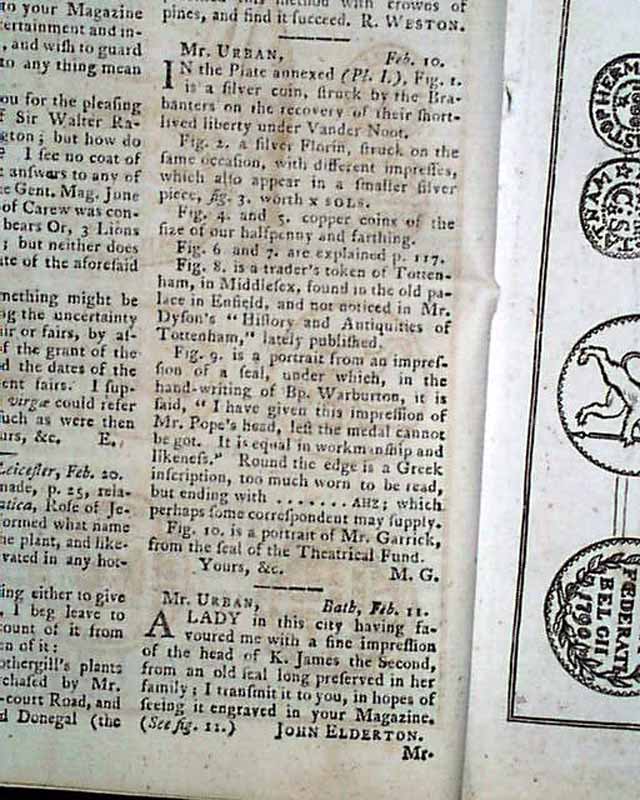 to your Magazine
ertainment and in-
, and wish to guard
to any thing mean
ou for the pleasing
f Sir Walter Ra-
gton; but how do
? I see no coat of
answers to any of
e Gent. Mag. June
of Carew was con-
bears Or, 3 Lions
; but neither does
ate of the aforesaid
mething might be
ng the uncertainty
air or fairs, by af-
f the grant of the
d the dates of the
ent fairs. I sup-
virgæ could refer
such as were then
urs, &c. E.
Leicester, Feb. 20.
made, p. 25, rela-
atica, Rose of Je-
formed what name
he plant, and like-
vated in any hot-
ing either to give
, I beg leave to
count of it from
en of it:
othergill's plants
rchased by Mr.
-court Road, and
d Donegal (the
this method with crowns of
pines, and find it succeed. R. WESTON.
Mr. URBAN, Feb. 10.
IN the Plate annexed (Pl. I.), Fig. 1.
is a silver coin, struck by the Bra-
banters on the recovery of their short-
lived liberty under Vander Noot.
Fig. 2. a silver Florin, struck on the
same occasion, with different impresses,
which also appear in a smaller silver
piece, fig. 3. worth x SOLS.
Fig. 4. and 5. copper coins of the
size of our halfpenny and farthing.
Fig. 6 and 7. are explained p. 117.
Fig. 8. is a trader's token of Totten-
ham, in Middlesex, found in the old pa-
lace in Enfield, and not noticed in Mr.
Dyson's "History and Antiquities of
Tottenham," lately published.
Fig. 9. is a portrait from an impres-
sion of a seal, under which, in the
hand-writing of Bp. Warburton, it is
said, "I have given this impression of
Mr. Pope's head, lest the medal cannot
be got. It is equal in workmanship and
likeness." Round the edge is a Greek
inscription, too much worn to be read,
but ending with ....... AHZ; which
perhaps some correspondent may supply.
Fig. 10. is a portrait of Mr. Garrick,
from the seal of the Theatrical Fund.
Yours, &c. M. G.
Mr. URBAN, Bath, Feb. 11.
A LADY in this city having fa-
voured me with a fine impression
of the head of K. James the Second,
from an old seal long preserved in her
family; I transmit it to you, in hopes of
seeing it engraved in your Magazine.
(See fig. 11.) JOHN ELDERTON.
Mr.
STOPHER
ATNAM
FŒDERATI
BELGII
1790